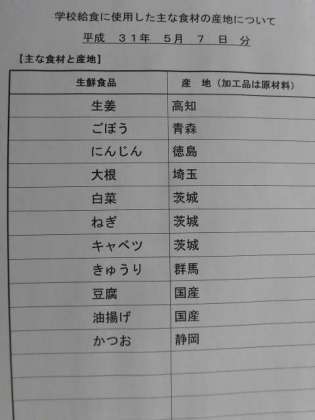 学校給食に使用した主な食材の産地について
平成 31年 5月 7 日 分
【主な食材と産地】
生鮮食品 産 地（加工品は原材料）
生姜 高知
ごぼう 青森
にんじん 徳島
大根 埼玉
白菜 茨城
ねぎ 茨城
キャベツ 茨城
きゅうり 群馬
豆腐 国産
油揚げ 国産
かつお 静岡